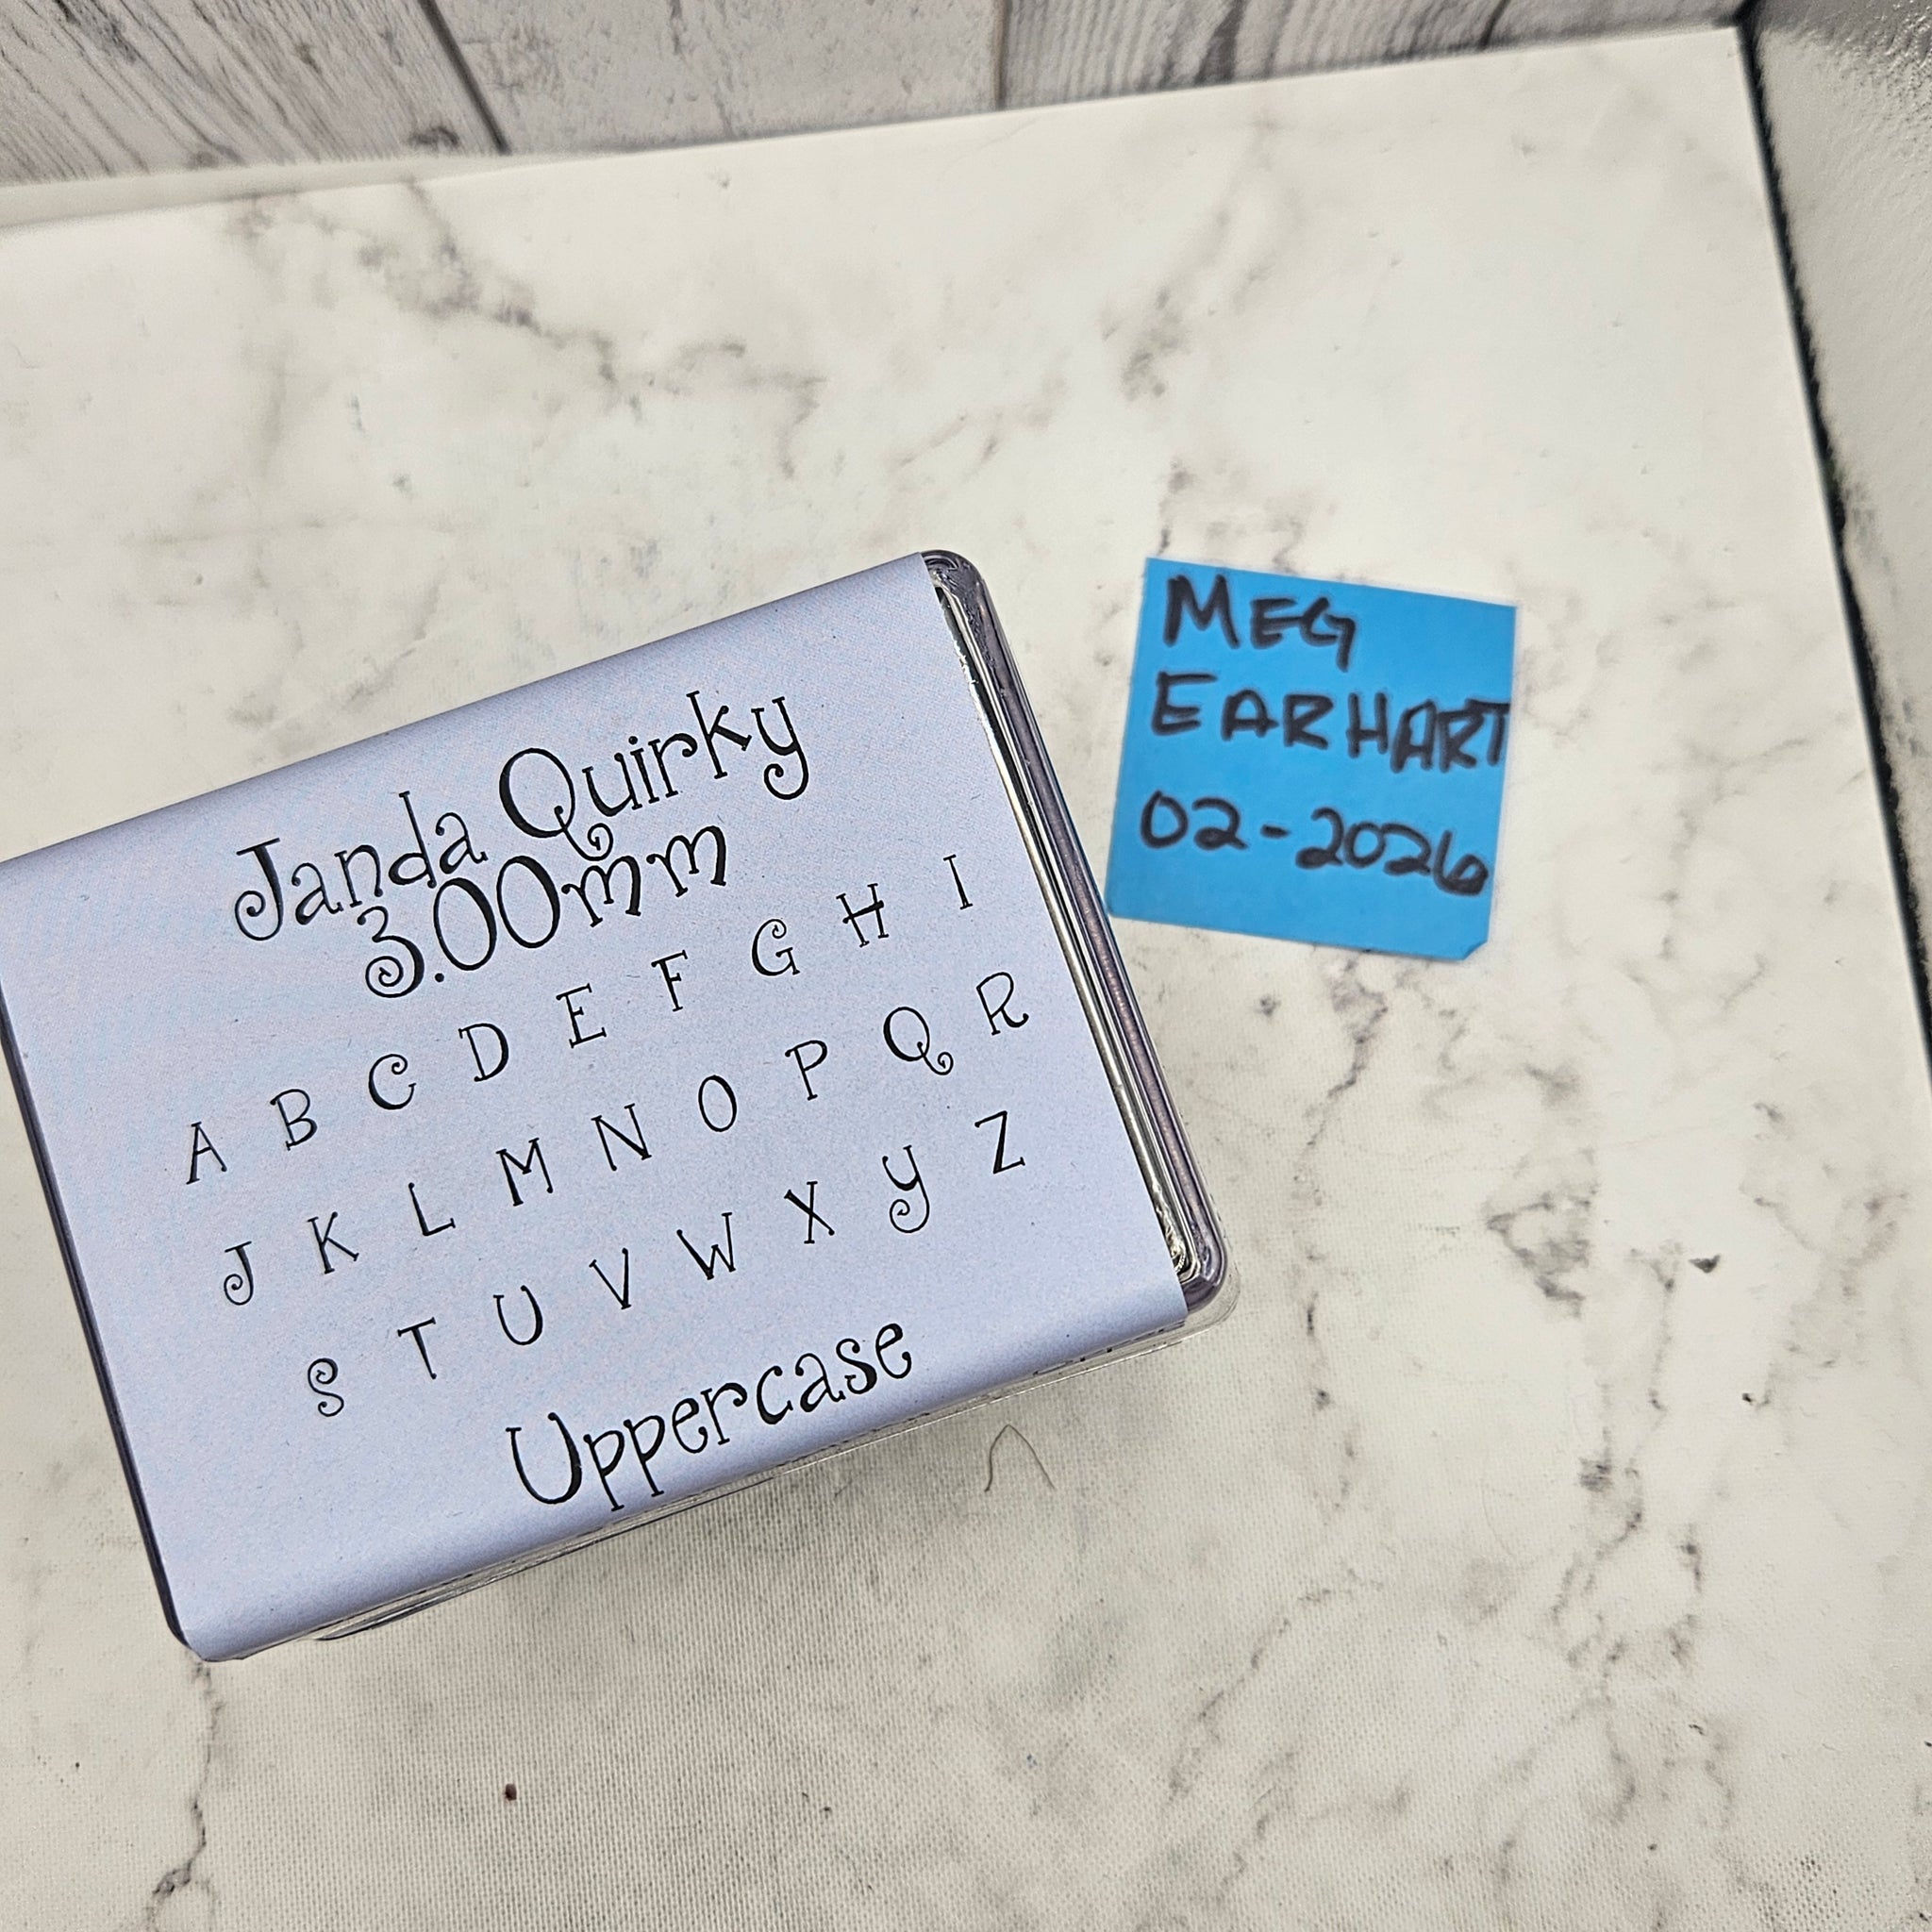 Janda Quirky
3.00mm
A B C D E F G H I
J K L M N O P Q R
S T U V W X Y Z
Uppercase
MEG
EARHART
02-2026